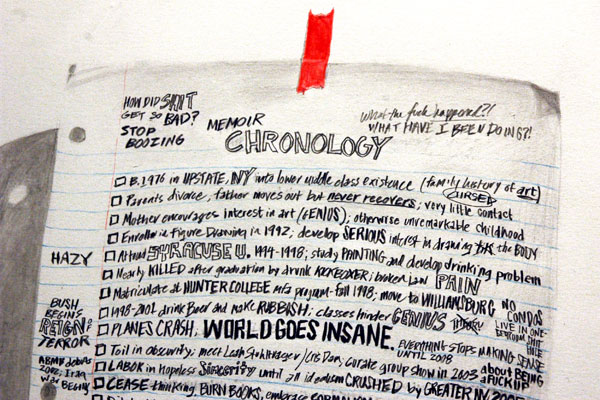 HOW DID SHIT
GET SO BAD?
STOP
BOOZING
MEMOIR
CHRONOLOGY
What the fuck happened?!
WHAT HAVE I BEEN DOING?!
B. 1976 in UPSTATE, NY into lower middle class existence (family history of art)
CURSED
Parents divorce, father moves out but never recovers; very little contact
Mother encourages interest in art (GENIUS); otherwise unremarkable childhood
Enroll in Figure Drawing in 1992; develop SERIOUS interest in drawing the BODY
Attend SYRACUSE U. 1994-1998; study PAINTING and develop drinking problem
HAZY
Nearly KILLED after graduation by drunk; broken jaw PAIN
Matriculate at HUNTER COLLEGE mfa program - Fall 1998; move to WILLIAMSBURG
NO
CONDOS
1998-2001 drink Beer and make RUBBISH; classes hinder GENIUS
LIVE IN ONE
BUSH
BEGINS
REIGN OF
TERROR
PLANES CRASH. WORLD GOES INSANE.
EVERYTHING STOPS MAKING SENSE
UNTIL 2008
Toil in obscurity; meet curate group show in 2003
about BEING
A FUCKUP
2002; Iraq
War BEGINS
LABOR in Hopeless until all idealism CRUSHED by GREATER NY 2005
CEASE thinking, BURN BOOKS, embrace